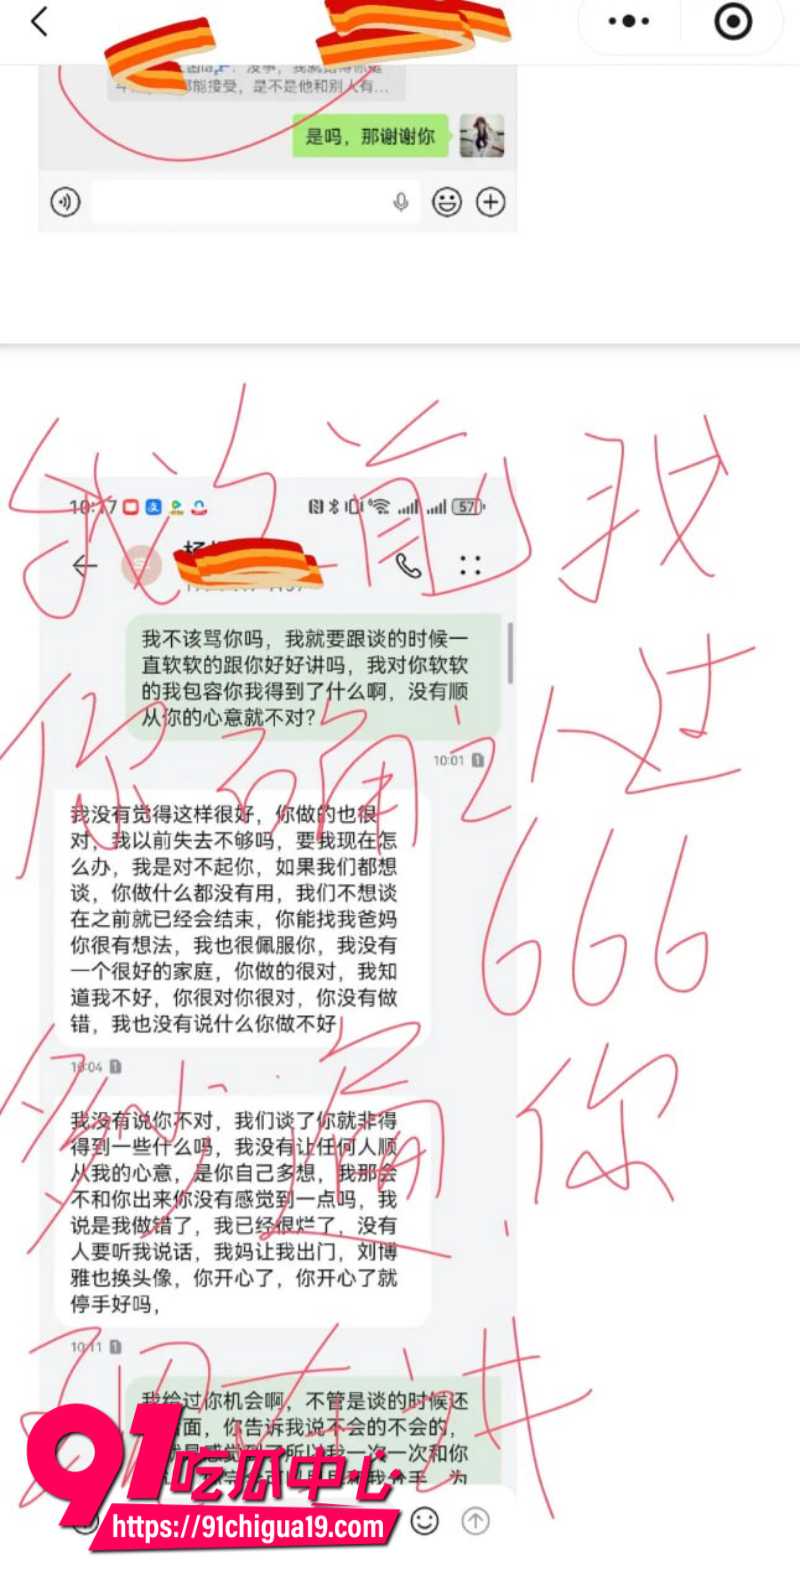 都能接受，是不是他和别人有...
是吗，那谢谢你
10:17
57
我之前我
我不该骂你吗，我就要跟谈的时候一
直软软的跟你好好讲吗，我对你软软
的我包容你我得到了什么啊，没有顺
从你的心意就不对？
10:01 1
你确认过
我没有觉得这样很好，你做的也很
对，我以前失去不够吗，要我现在怎
么办，我是对不起你，如果我们都想
谈，你做什么都没有用，我们不想谈
在之前就已经会结束，你能找我爸妈
你很有想法，我也很佩服你，我没有
一个很好的家庭，你做的很对，我知
道我不好，你很对你很对，你没有做
错，我也没有说什么你做不好
666
10:04 1
多少遍.你
我没有说你不对，我们谈了你就非得
得到一些什么吗，我没有让任何人顺
从我的心意，是你自己多想，我那会
不和你出来你没有感觉到一点吗，我
说是我做错了，我已经很烂了，没有
人要听我说话，我妈让我出门，刘博
雅也换头像，你开心了，你开心了就
停手好吗，
10:11 1
现在讲
我给过你机会啊，不管是谈的时候还
面，你告诉我说不会的不会的，
就是感觉到了所以我一次一次和你
91吃瓜中心
https://91chigua19.com